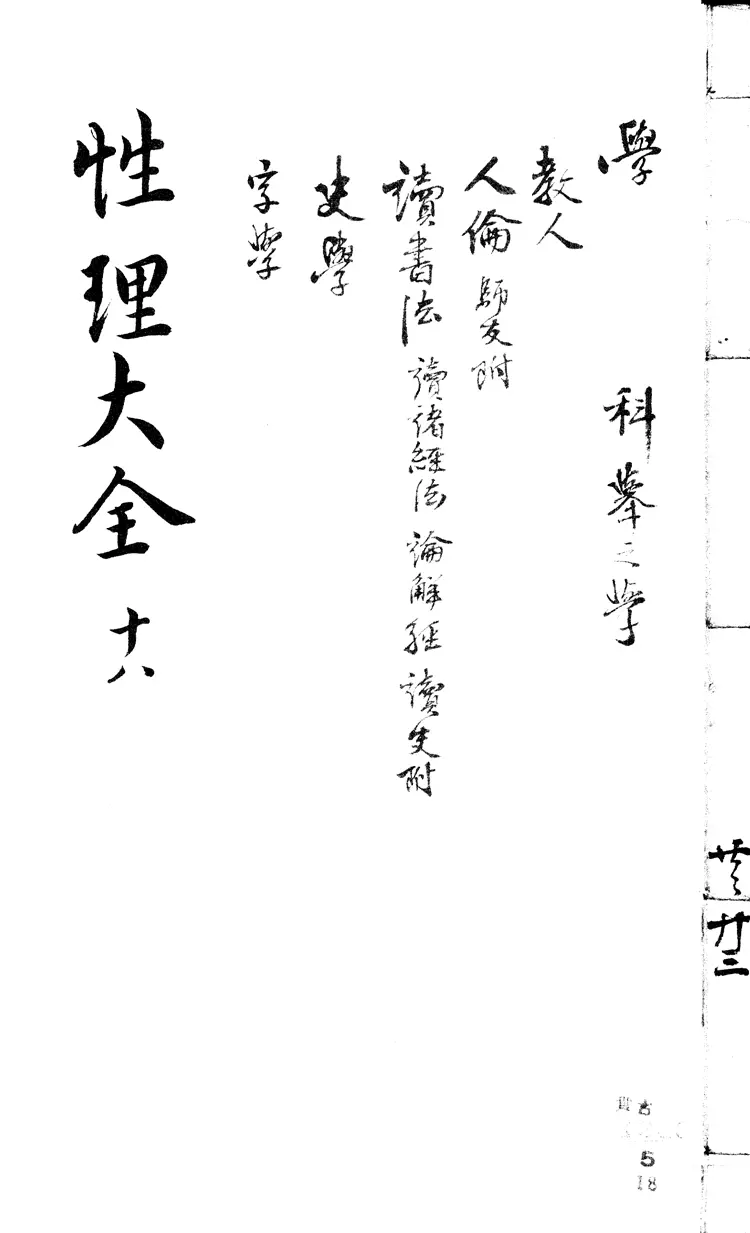 學 科舉之學
教人
人倫 師友附
讀書法 讀諸經法 論解經 讀史附
史學
字學
性理大全 十八
廿三
古
5
18